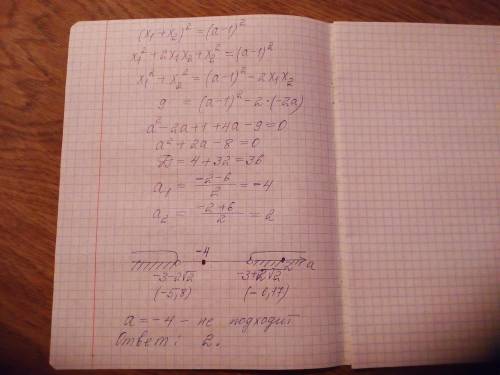 (x₁ + x₂)² = (a-1)²
x₁² + 2x₁x₂ + x₂² = (a-1)²
x₁² + x₂² = (a-1)² - 2x₁x₂
9 = (a-1)² - 2·(-2a)
a² - 2a + 1 + 4a - 9 = 0
a² + 2a - 8 = 0
D = 4 + 32 = 36
a₁ = (-2-6)/2 = -4
a₂ = (-2+6)/2 = 2
-4
-3-2√2 -3+2√2 2 a
(-5,8) (-0,17)
a = -4 - не подходит
Ответ: 2.